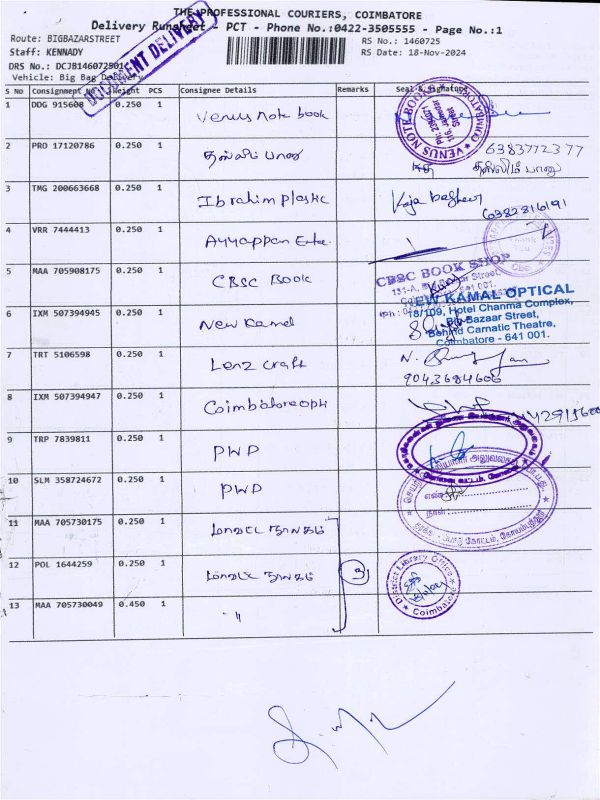 THE PROFESSIONAL COURIERS, COIMBATORE
Delivery Runsheet - PCT - Phone No.:0422-3505555 - Page No.:1
DOCUMENT DELIVERY
Route: BIGBAZARSTREET
RS No.: 1460725
Staff: KENNADY
RS Date: 18-Nov-2024
DRS No.: DCJB146072501
Vehicle: Big Bag Delivery
S No Consignment No Weight PCS Consignee Details Remarks Seal & Signature
1 DDG 915608 0.250 1 Venus Note book
VENUS NOTE BOOK
2 PRO 17120786 0.250 1 தஸ்லிம் பானு 6383772377
தஸ்லிம் பானு
3 TMG 200663668 0.250 1 Ibrahim plastic
6382816191
4 VRR 7444413 0.250 1 Ayyappan
5 MAA 705908175 0.250 1 CBSC Book
CBSC BOOK SHOP
6 IXM 507394945 0.250 1 New Kamal
NEW KAMAL OPTICAL
18/109, Hotel Chanma Complex,
Big Bazaar Street,
Behind Carnatic Theatre,
Coimbatore - 641 001.
7 TRT 5106598 0.250 1 Lenz craft
9043684606
8 IXM 507394947 0.250 1 Coimbatore opti
9 TRP 7839811 0.250 1 PWD
10 SLM 358724672 0.250 1 PWD
11 MAA 705730175 0.250 1 மாவட்ட நூலகம்
12 POL 1644259 0.250 1 மாவட்ட நூலகம் 3
District Library Office
Coimbatore
13 MAA 705730049 0.450 1 "